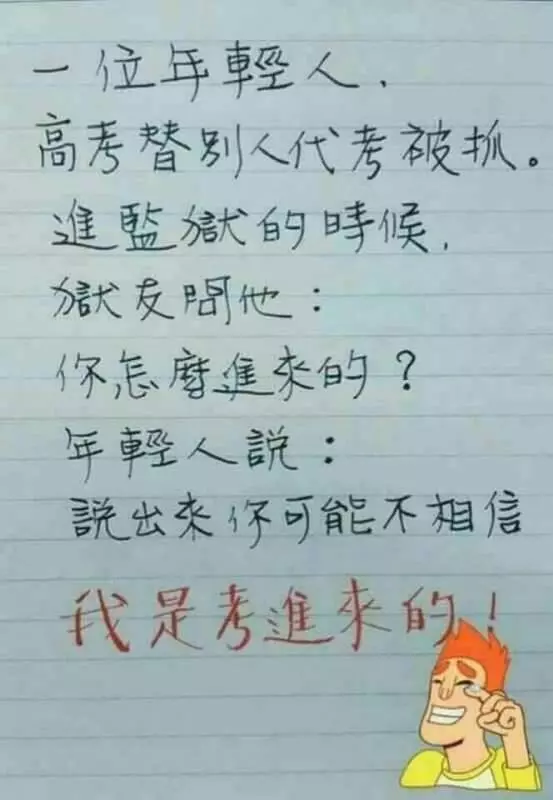 一位年輕人,
高考替別人代考被抓。
進監獄的時候,
獄友問他：
你怎麼進來的？
年輕人說：
說出來你可能不相信
我是考進來的！